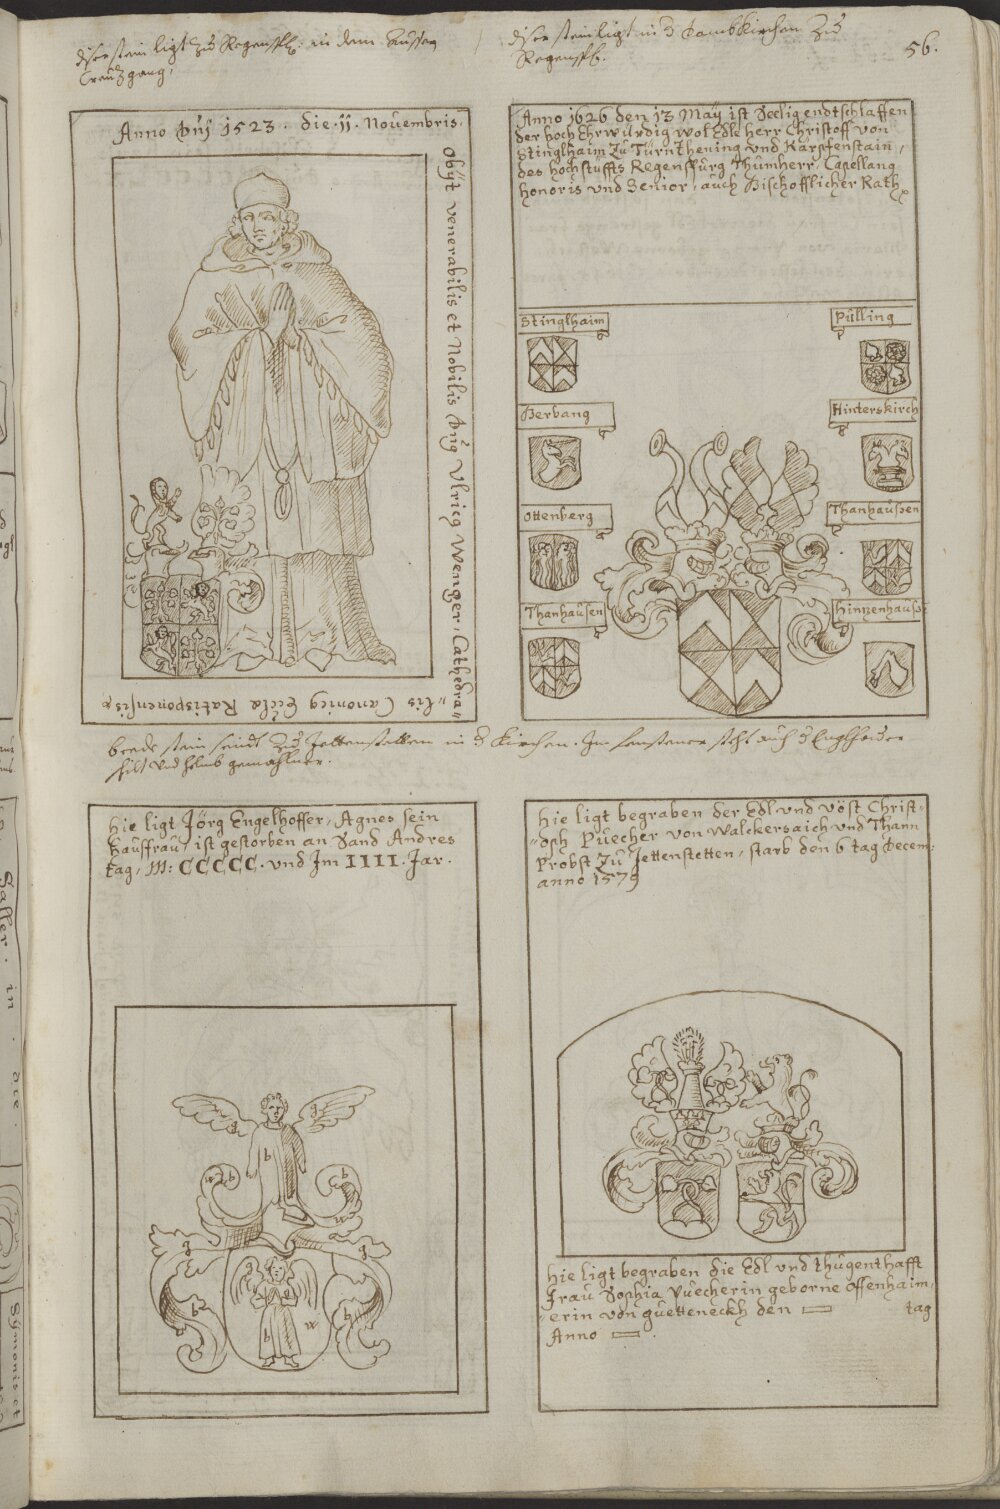 diser stain ligt zu Regenspl: in dem Aussern
Creuzgang,
diser stain ligt in d Dombkirchen zu
Regenspb.
56.
Anno Dnj 1523. die.11. Novembris.
obijt venerabilis et Nobilis Dnq Vlricq Wenger. Cathedra„
„lis Canonicq Ecclae Ratisponensis
Anno 1626 den 13 Maÿ ist Seelig endtschlaffen
der hoch Ehrwürdig wol Edle herr Christoff von
Stinglhaim Zu Türnthening vnd Karpfenstain,
des hochstüffts Regenspurg Thumherr, Capellang
honoris vnd Senior, auch Bischofflicher Rath
Stinglhaim
Pülling
Berbang
Hinterskirch
Ottenberg
Thanhausen
Thanhausen
Hinzenhaus
beede stain seindt zu Jettenstetten in d Kirchen. Im fenster steht auch d Englhoffer
schilt vnd helmb gemahlner.
hie ligt Jörg Engelhoffer, Agnes sein
hausfrau, ist gestorben an Sand Andres
tag, M: CCCCC. vnd Im IIII. Jar.
hie ligt begraben der Edl vnd vöst Christ„
„oph Puecher von Walckersaich vnd Thann
Probst Zu Jettenstetten, starb den 6 tag Decem:
anno 1579
g
g
b
b
b
g
g
b
b
b
w
hie ligt begraben die Edl vnd thugenthafft
frau Sophia Puecherin geborne offenhaim„
„erin von guetteneckh den tag
Anno .